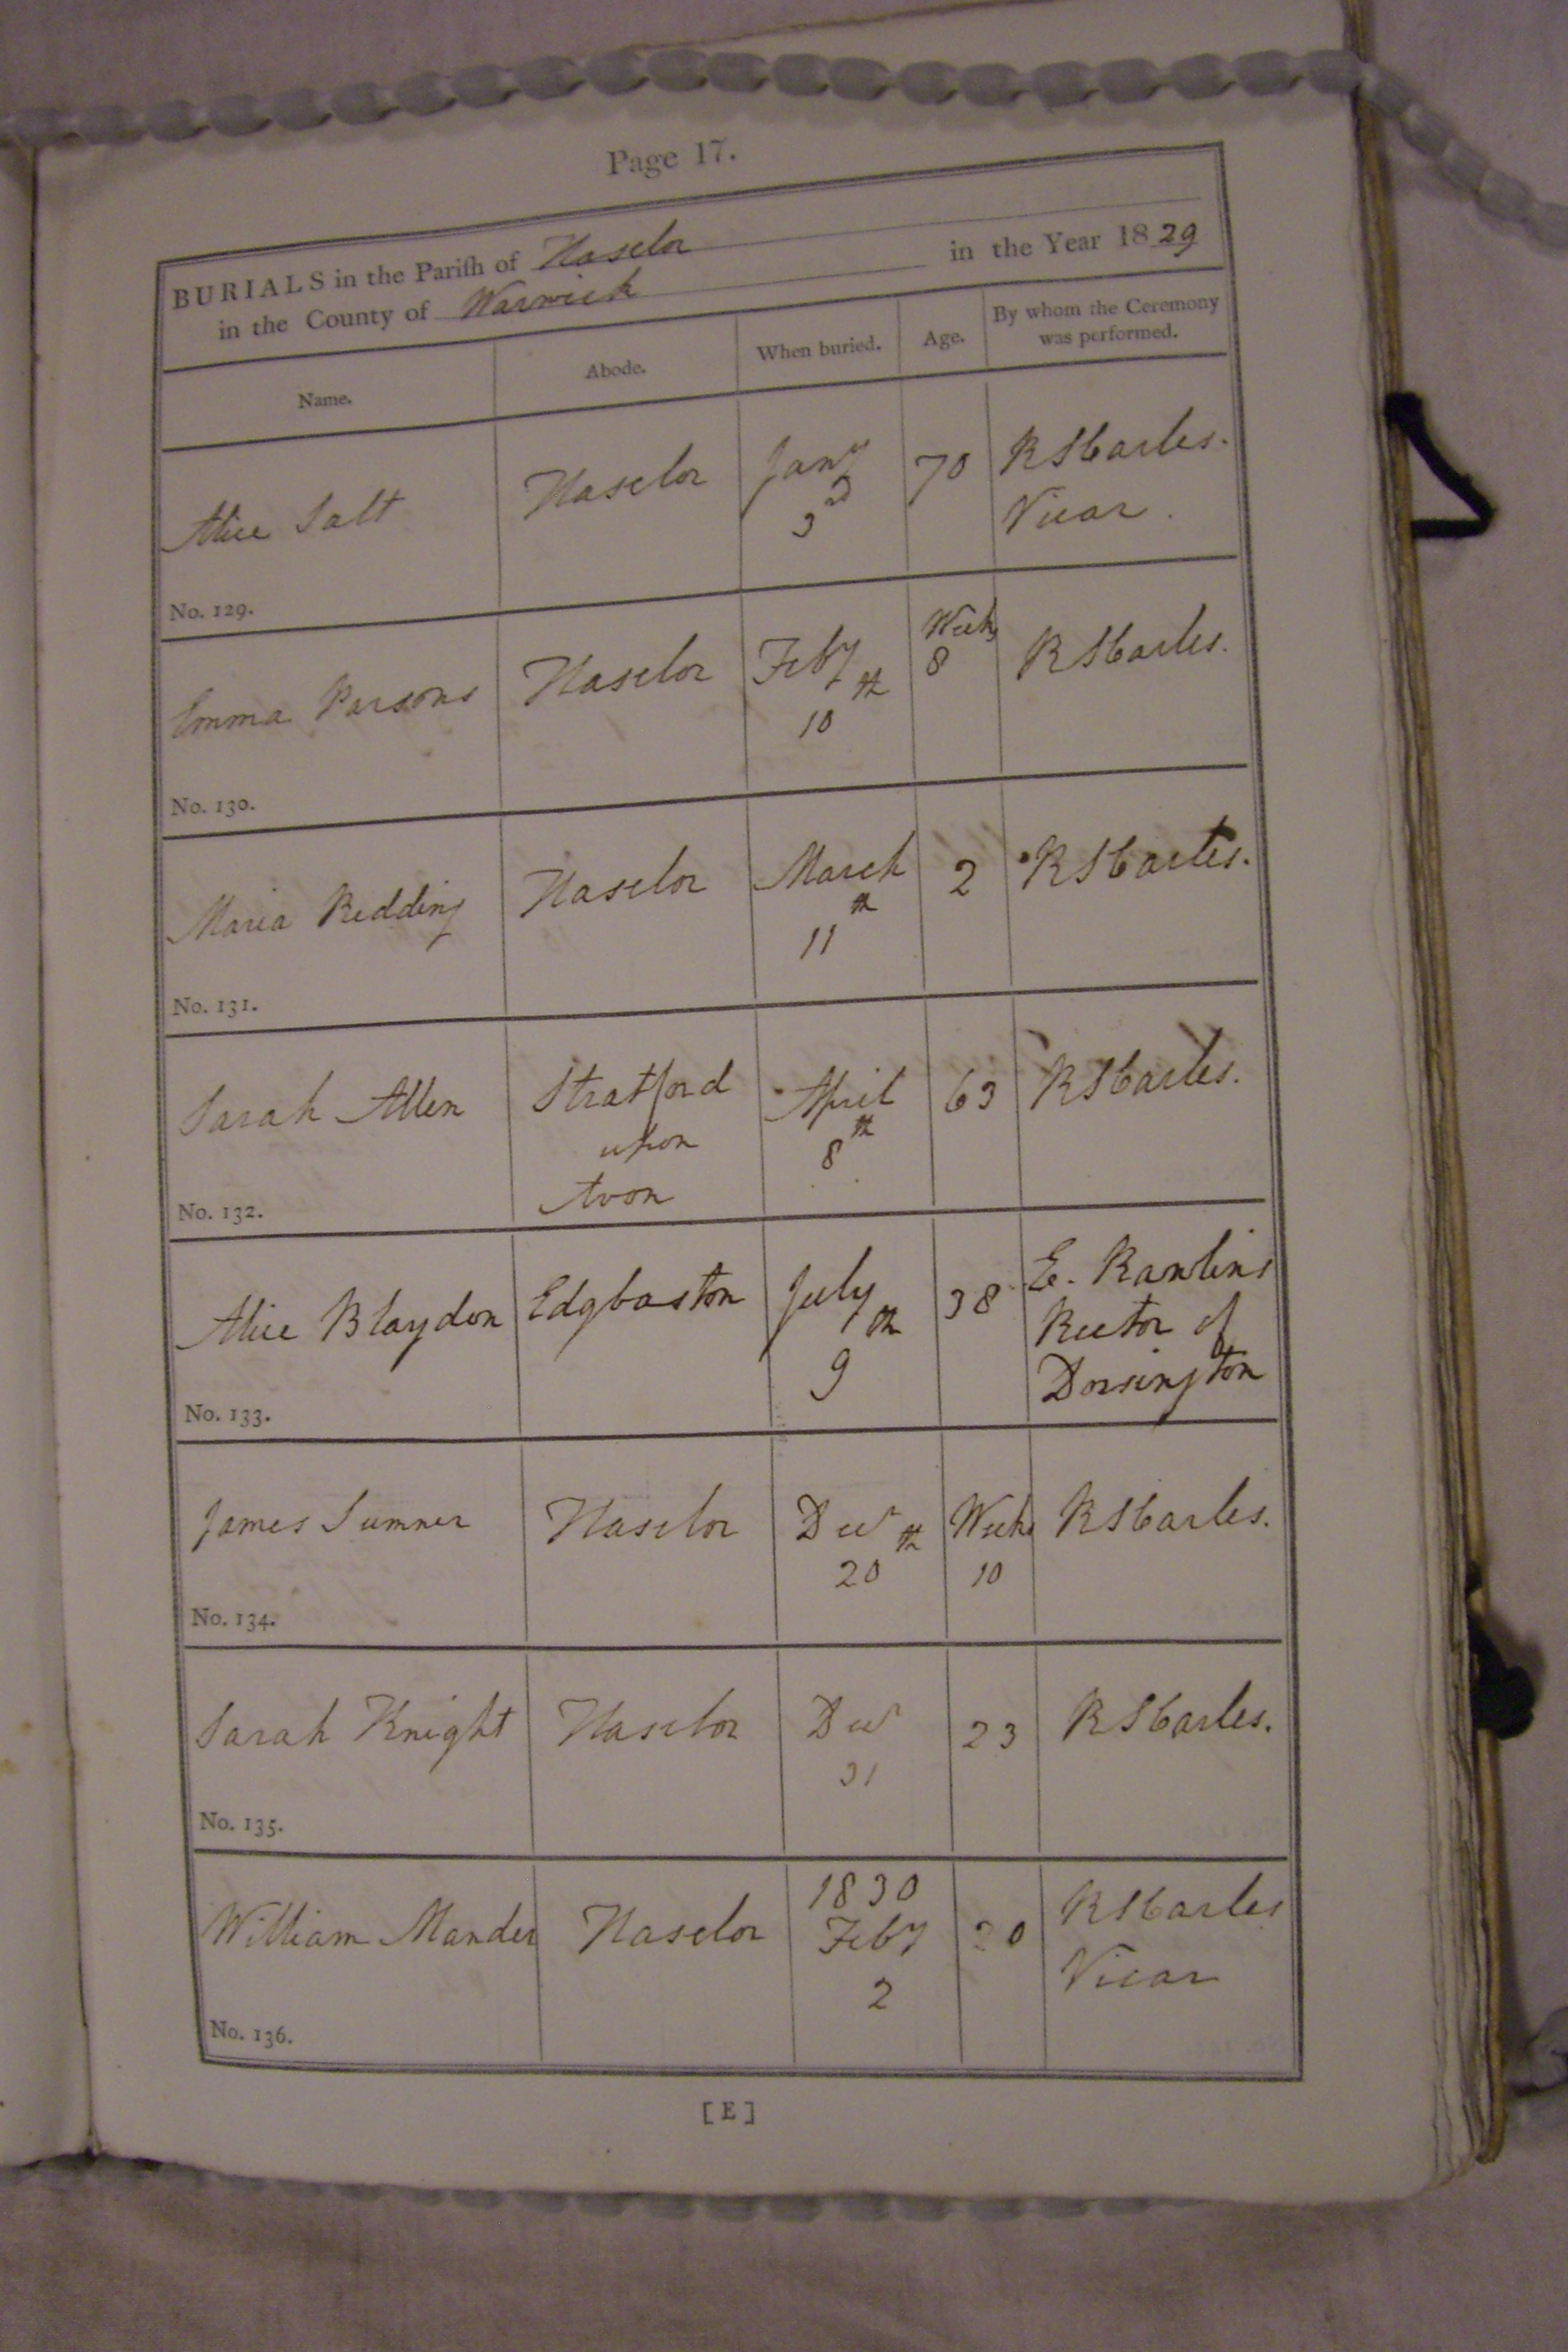 Page 17.
BURIALS in the Parish of Haselor
in the County of Warwick in the Year 1829
Name. Abode. When buried. Age. By whom the Ceremony was performed.
Alice Salt
No. 129.
Haselor
Jany
3d
70
R S Carles.
Vicar.
Emma Parsons
No. 130.
Haselor
Feby
10th
Weeks
8
R S Carles.
Maria Redding
No. 131.
Haselor
March
11th
2
R S Carles.
Sarah Allen
No. 132.
Stratford
upon
Avon
April
8th
63
R S Carles.
Alice Blaydon
No. 133.
Edgbaston
July
9th
38
E. Rawlins
Rector of
Dorsington
James Sumner
No. 134.
Haselor
Decr
20th
Weeks
10
R S Carles.
Sarah Knight
No. 135.
Haselor
Decr
31
23
R S Carles.
William Mander
No. 136.
Haselor
1830
Feby
2
20
R S Carles
Vicar
[E]